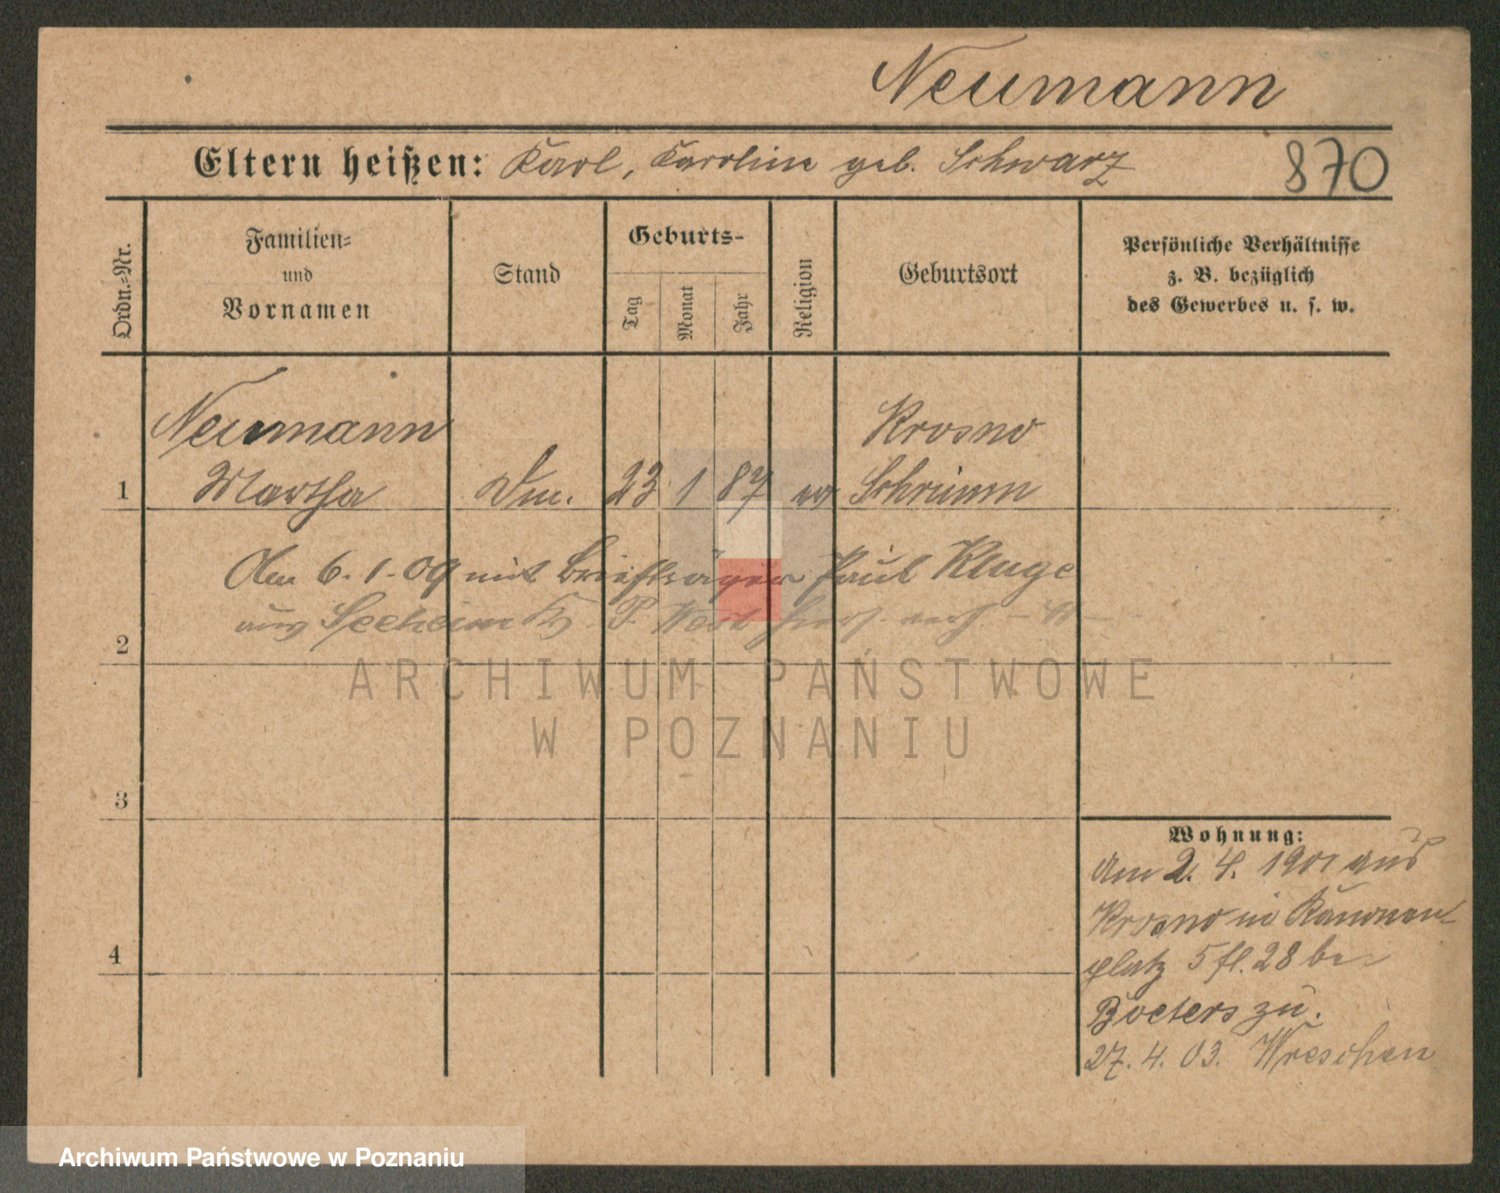 Neumann
Eltern heißen: Karl, Karoline geb. Schwarz
870
Ordn.-Nr.
Familien-
und
Vornamen
Stand
Geburts-
Tag
Monat
Jahr
Religion
Geburtsort
Persönliche Verhältnisse
z. B. bezüglich
des Gewerbes u. s. w.
Neumann Krosno
1 Martha Dm. 23 1 87 ev Schrimm
Am 6.1.09 mit Briefträger Paul Kluge
aus Seeheim Kr. P. West
2
ARCHIWUM PAŃSTWOWE
W POZNANIU
3
4
Wohnung:
Am 2. 4. 1901 aus
Krosno in Kanonen
platz 5 fl. 28 bei
Boeters zu.
27. 4. 03. Wreschen
Archiwum Państwowe w Poznaniu